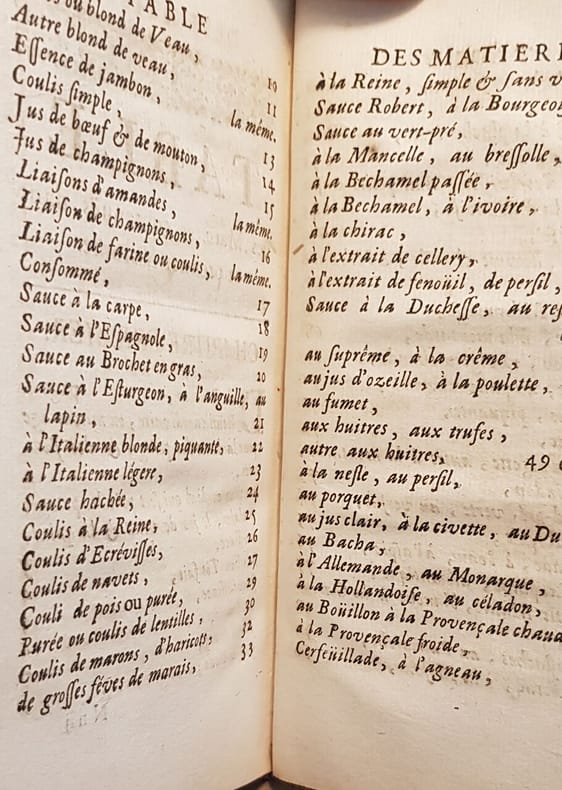 TABLE
ou blond de Veau,
Autre blond de veau, 10
Eſſence de jambon, 11
Coulis ſimple, la même.
Jus de bœuf & de mouton, 13
Jus de champignons, 14
Liaiſons d'amandes, 15
Liaiſon de champignons, la même.
Liaiſon de farine ou coulis, 16
Conſommé, la même.
Sauce à la carpe, 17
Sauce à l'Eſpagnole, 18
Sauce au Brochet en gras, 19
Sauce à l'Eſturgeon, à l'anguille, au 20
lapin, 21
à l'Italienne blonde, piquante, 22
à l'Italienne légere, 23
Sauce hachée, 24
Coulis à la Reine, 25
Coulis d'Ecréviſſes, 26
Coulis de navets, 27
Couli de pois ou purée, 29
Purée ou coulis de lentilles, 30
Coulis de marons, d'haricots, 32
de groſſes féves de marais, 33
DES MATIERE
à la Reine, ſimple & ſans
Sauce Robert, à la Bourgeoi
Sauce au vert-pré,
à la Mancelle, au breſſolle,
à la Bechamel paſſée,
à la Bechamel, à l'ivoire,
à la chirac,
à l'extrait de cellery,
à l'extrait de fenoüil, de perſil,
Sauce à la Ducheſſe, au
au ſuprême, à la crême,
au jus d'ozeille, à la poulette,
au fumet,
aux huitres, aux trufes,
autre aux huitres, 49
à la neſle, au perſil,
au porquet,
au jus clair, à la civette, au Du
au Bacha,
à l'Allemande, au Monarque,
à la Hollandoiſe, au céladon,
au Boüillon à la Provençale chaud
à la Provençale froide,
Cerfeüillade, à l'agneau,